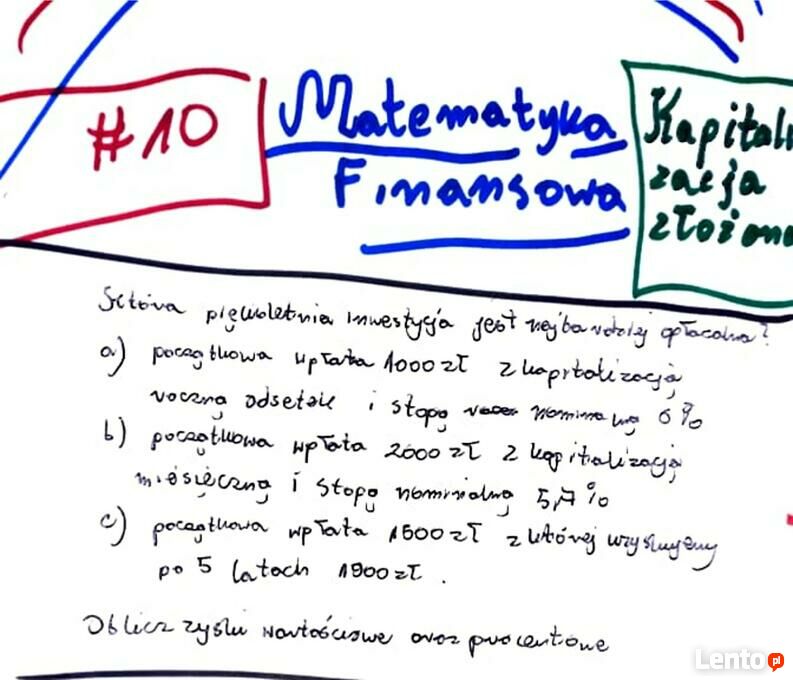 #10
Matematyka
Finansowa
Kapitali
zacja
złożona
Która pięcioletnia inwestycja jest najbardziej opłacalna?
a) początkowa wpłata 1000 zł z kapitalizacją
roczną odsetek i stopą nominalną 6%
b) początkowa wpłata 2000 zł z kapitalizacją
miesięczną i stopą nominalną 5,7%
c) początkowa wpłata 1500 zł z której uzyskujemy
po 5 latach 1900 zł.
Oblicz zyski wartościowe oraz procentowe
Lento.pl